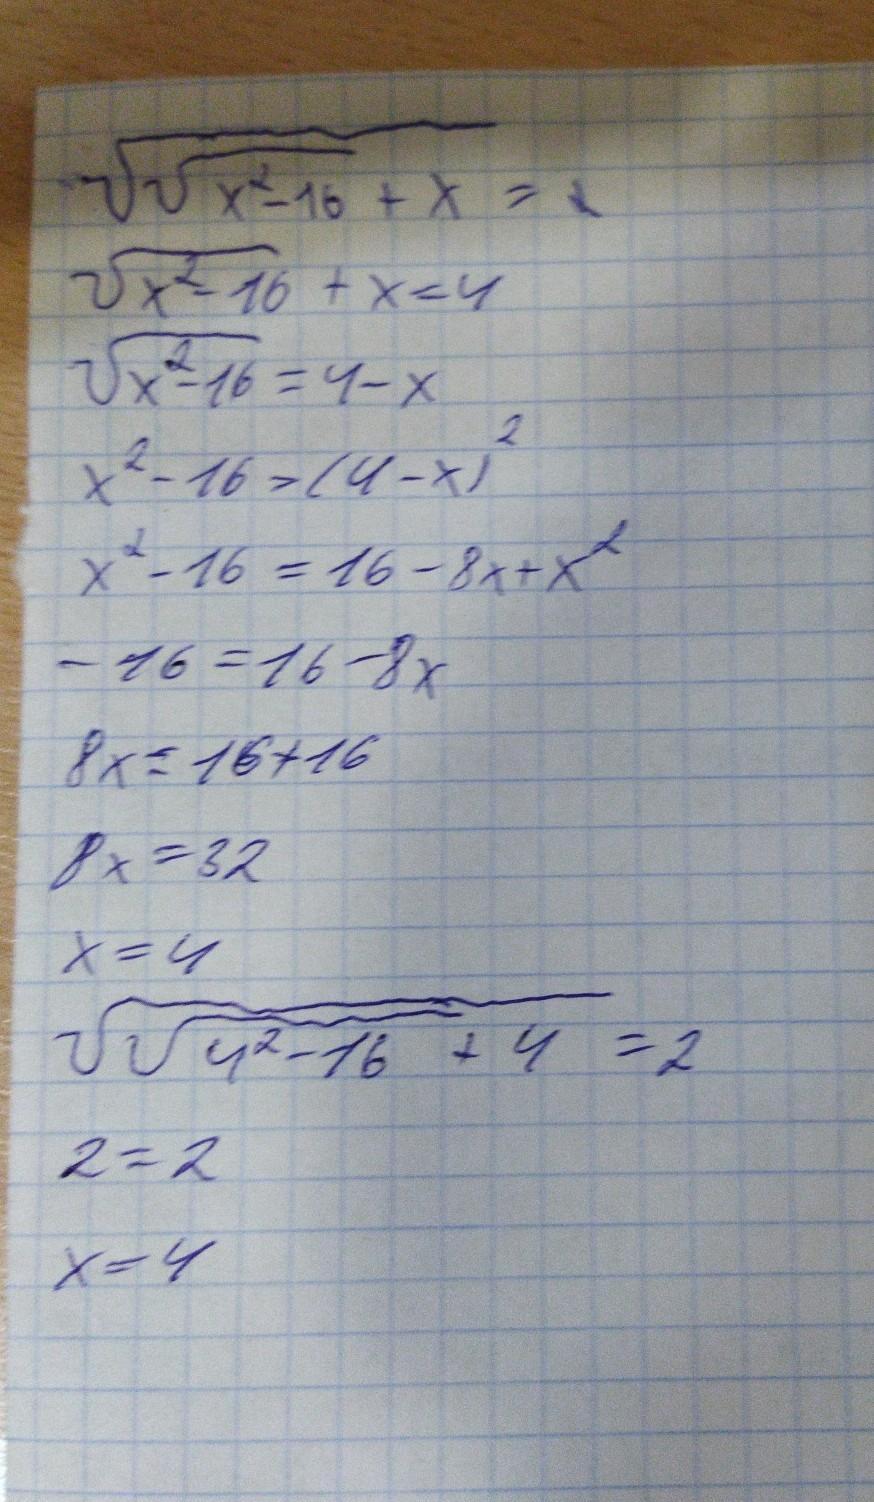 √(√(x²-16) + x) = 2
√(x²-16) + x = 4
√(x²-16) = 4 - x
x² - 16 = (4 - x)²
x² - 16 = 16 - 8x + x²
- 16 = 16 - 8x
8x = 16 + 16
8x = 32
x = 4
√(√(4²-16) + 4) = 2
2 = 2
x = 4